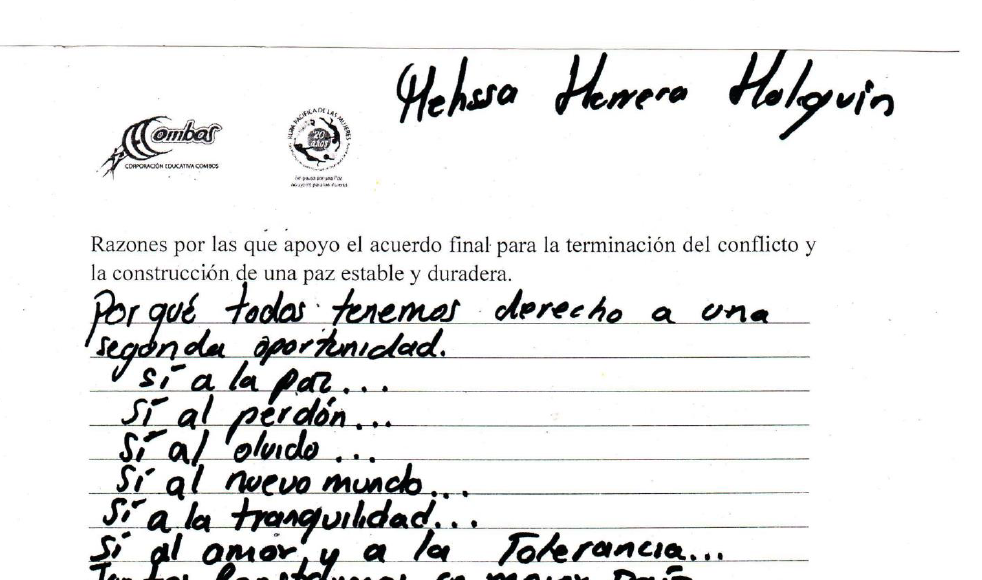 Melissa Herrera Holguin
Combos
CORPORACIÓN EDUCATIVA COMBOS
RUTA PACÍFICA DE LAS MUJERES
20 años
Razones por las que apoyo el acuerdo final para la terminación del conflicto y
la construcción de una paz estable y duradera.
Por qué todos tenemos derecho a una
segunda oportunidad.
Sí a la paz...
Sí al perdón...
Sí al olvido...
Sí al nuevo mundo...
Sí a la tranquilidad...
Sí al amor y a la Tolerancia...